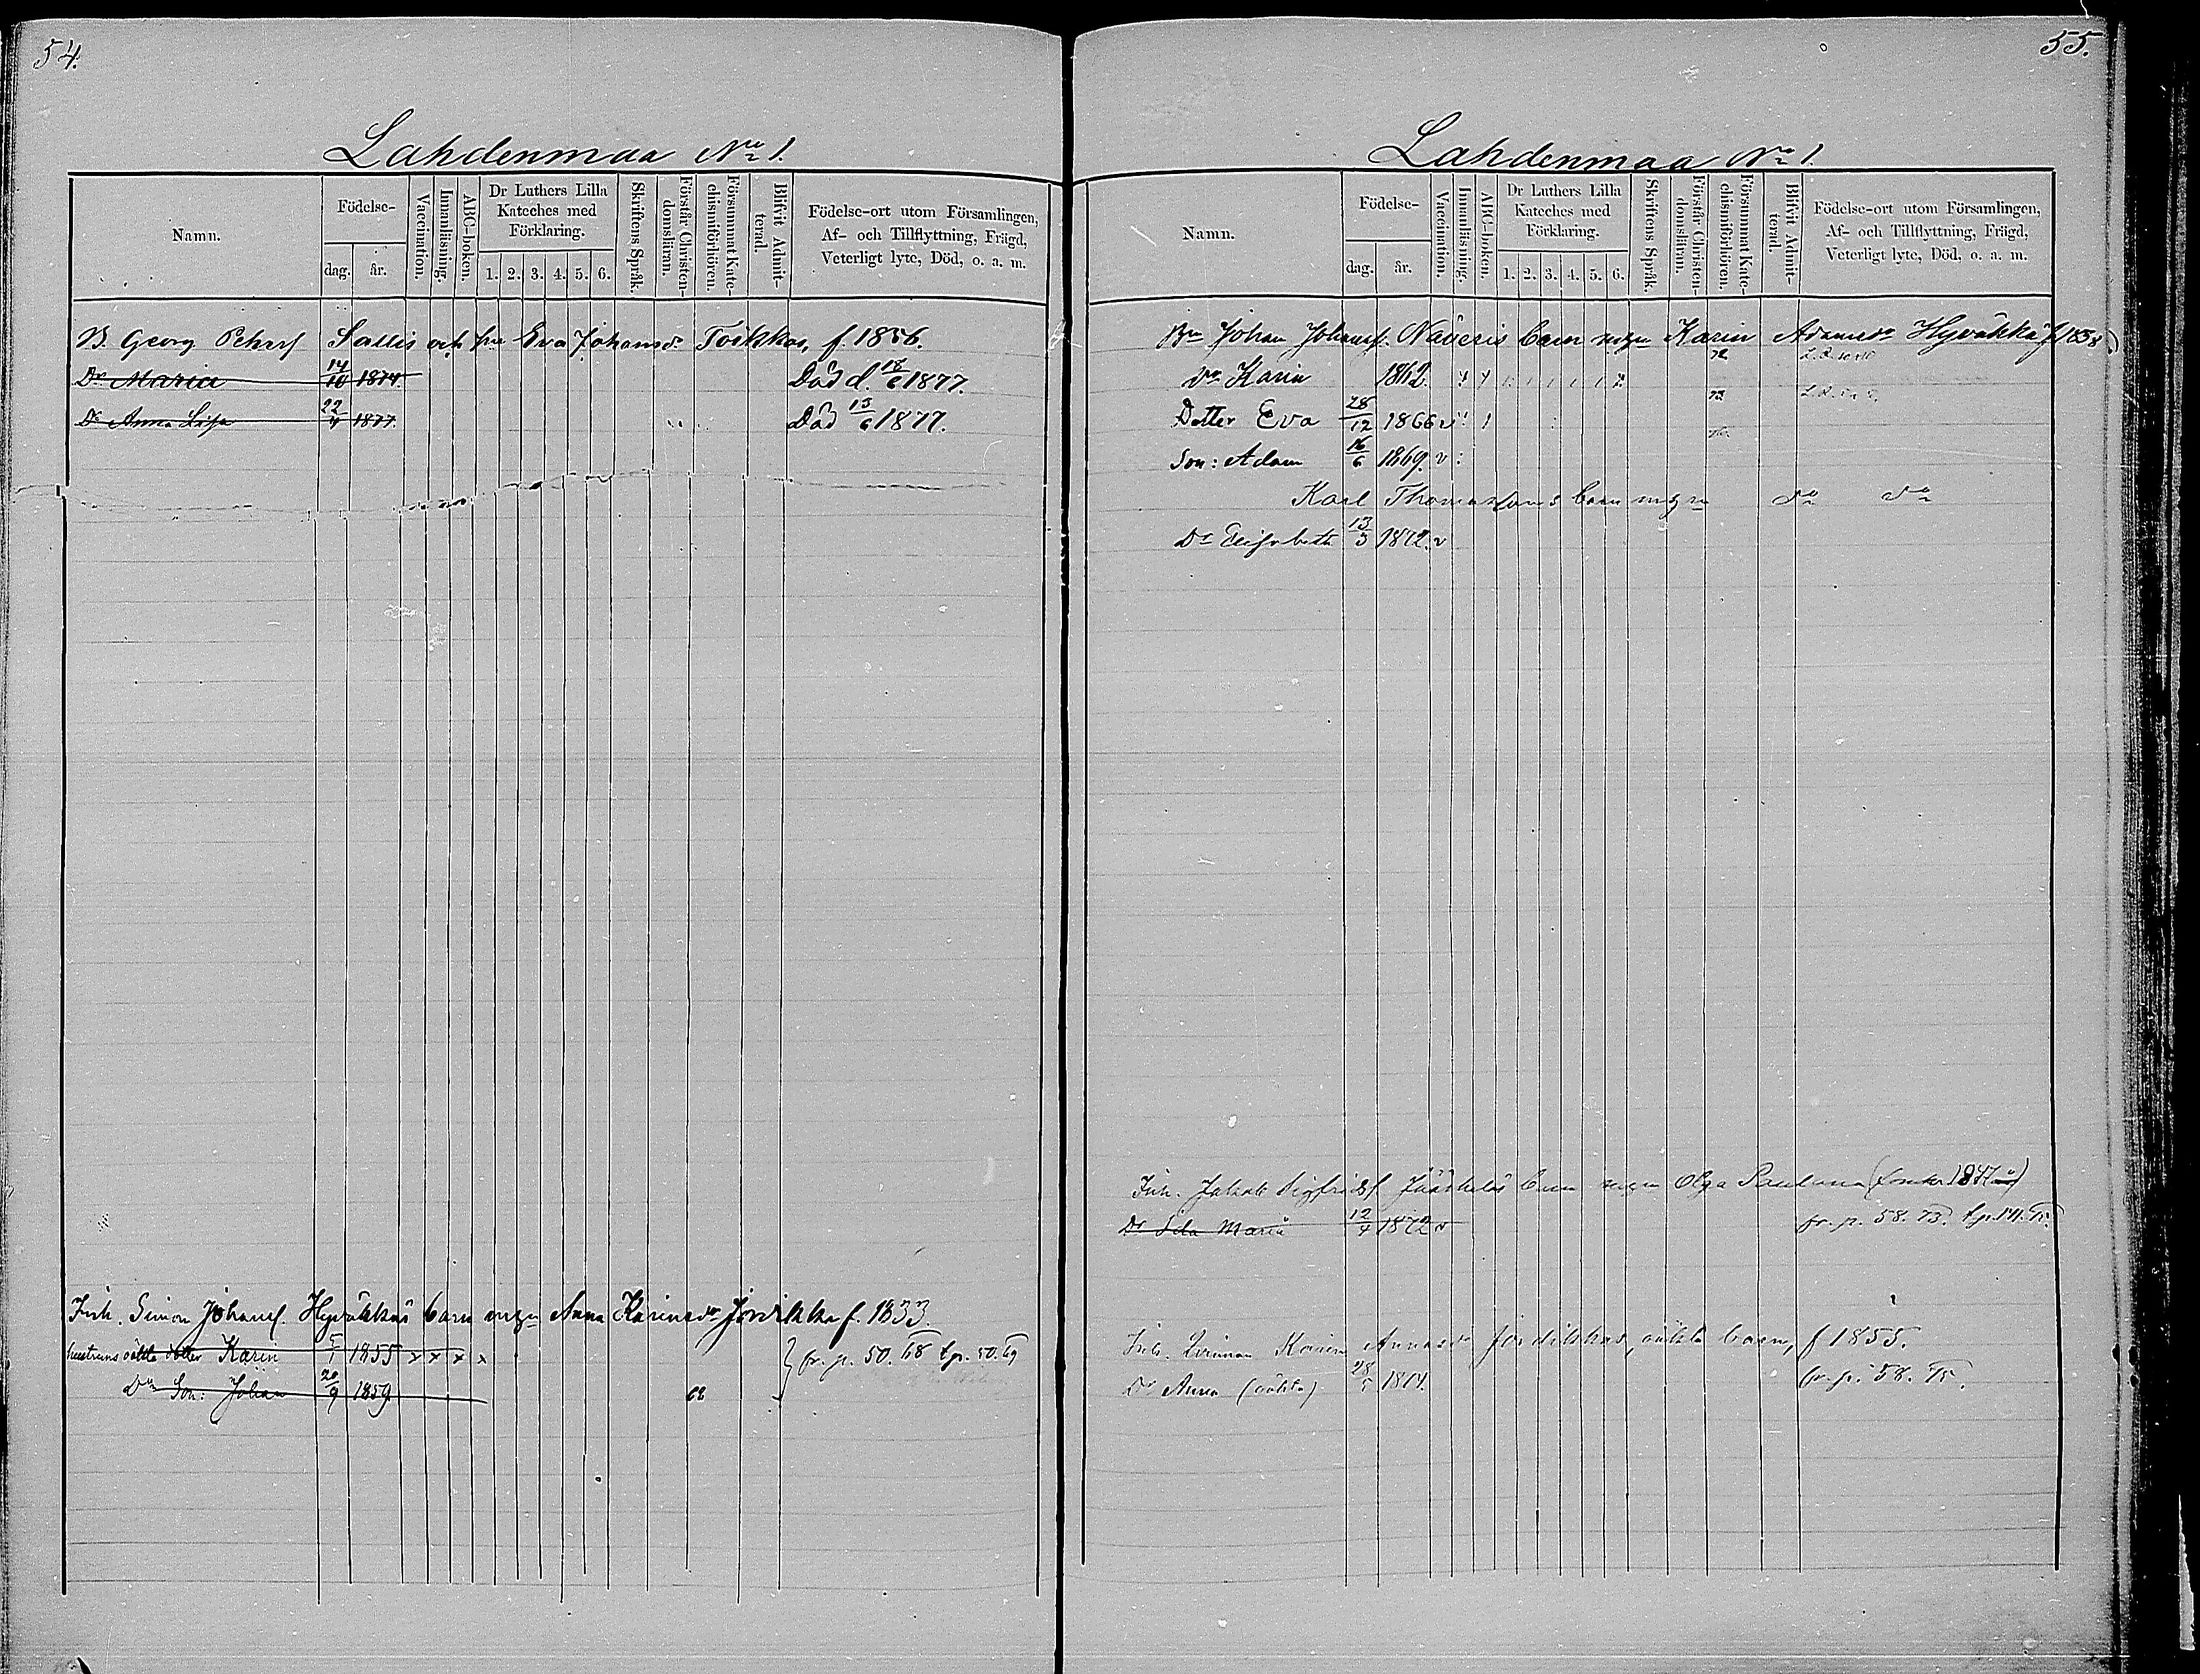 54.
Lahdenmaa No 1.
Namn.
Födelse-
dag.
år.
Vaccination.
Innanläsning.
ABC-boken.
Dr Luthers Lilla
Kateches med
Förklaring.
1. 2. 3. 4. 5. 6.
Skriftens Språk.
Förstår Christen-
domsläran.
Försummat Kate-
chismförhören.
Blifvit Admit-
terad.
Födelse-ort utom Församlingen,
Af- och Tillflyttning, Frägd,
Veterligt lyte, Död, o. a. m.
B. Georg Pehrs Sallis och hu Eva Johansd. Toikka, f. 1856.
Dr Maria 14/10 1874. Död d. 18/6 1877.
Dr Anna Lisa 22/4 1877. Död 13/6 1877.
Inh. Simon Johans. Hyväkkäs barn m Anna Karinsdr f. 1833.
hustruns oäkta dotter Karin 5/1 1855 x x x x fr. p. 50. 68 t.p. 50. 69
Dn Son: Johan 20/9 1859. 68
55.
Lahdenmaa No 1.
Namn.
Födelse-
dag.
år.
Vaccination.
Innanläsning.
ABC-boken.
Dr Luthers Lilla
Kateches med
Förklaring.
1. 2. 3. 4. 5. 6.
Skriftens Språk.
Förstår Christen-
domsläran.
Försummat Kate-
chismförhören.
Blifvit Admit-
terad.
Födelse-ort utom Församlingen,
Af- och Tillflyttning, Frägd,
Veterligt lyte, Död, o. a. m.
Bn Johan Johans. Näveris barn m Karin Adamsdr Hyväkkä f. 1838
Dr Karin 1862. 72
Dotter Eva 28/12 1866 v 73
Son: Adam 16/6 1869. v
Karl Thomassons barn m Do Do
Dr Elisabeth 13/3 1872. v
Inh. Jakob Sigfrids Jääskeläs barn m Olga Paulina 1847
Dr Ida Maria 12/4 1872 v fr. p. 58. 73. t.p. 141. 75.
Inh. Karin Annasdr oäkta barn, f 1855.
Dr Anna (oäkta) 28/5 1874. fr. p. 58. 75.